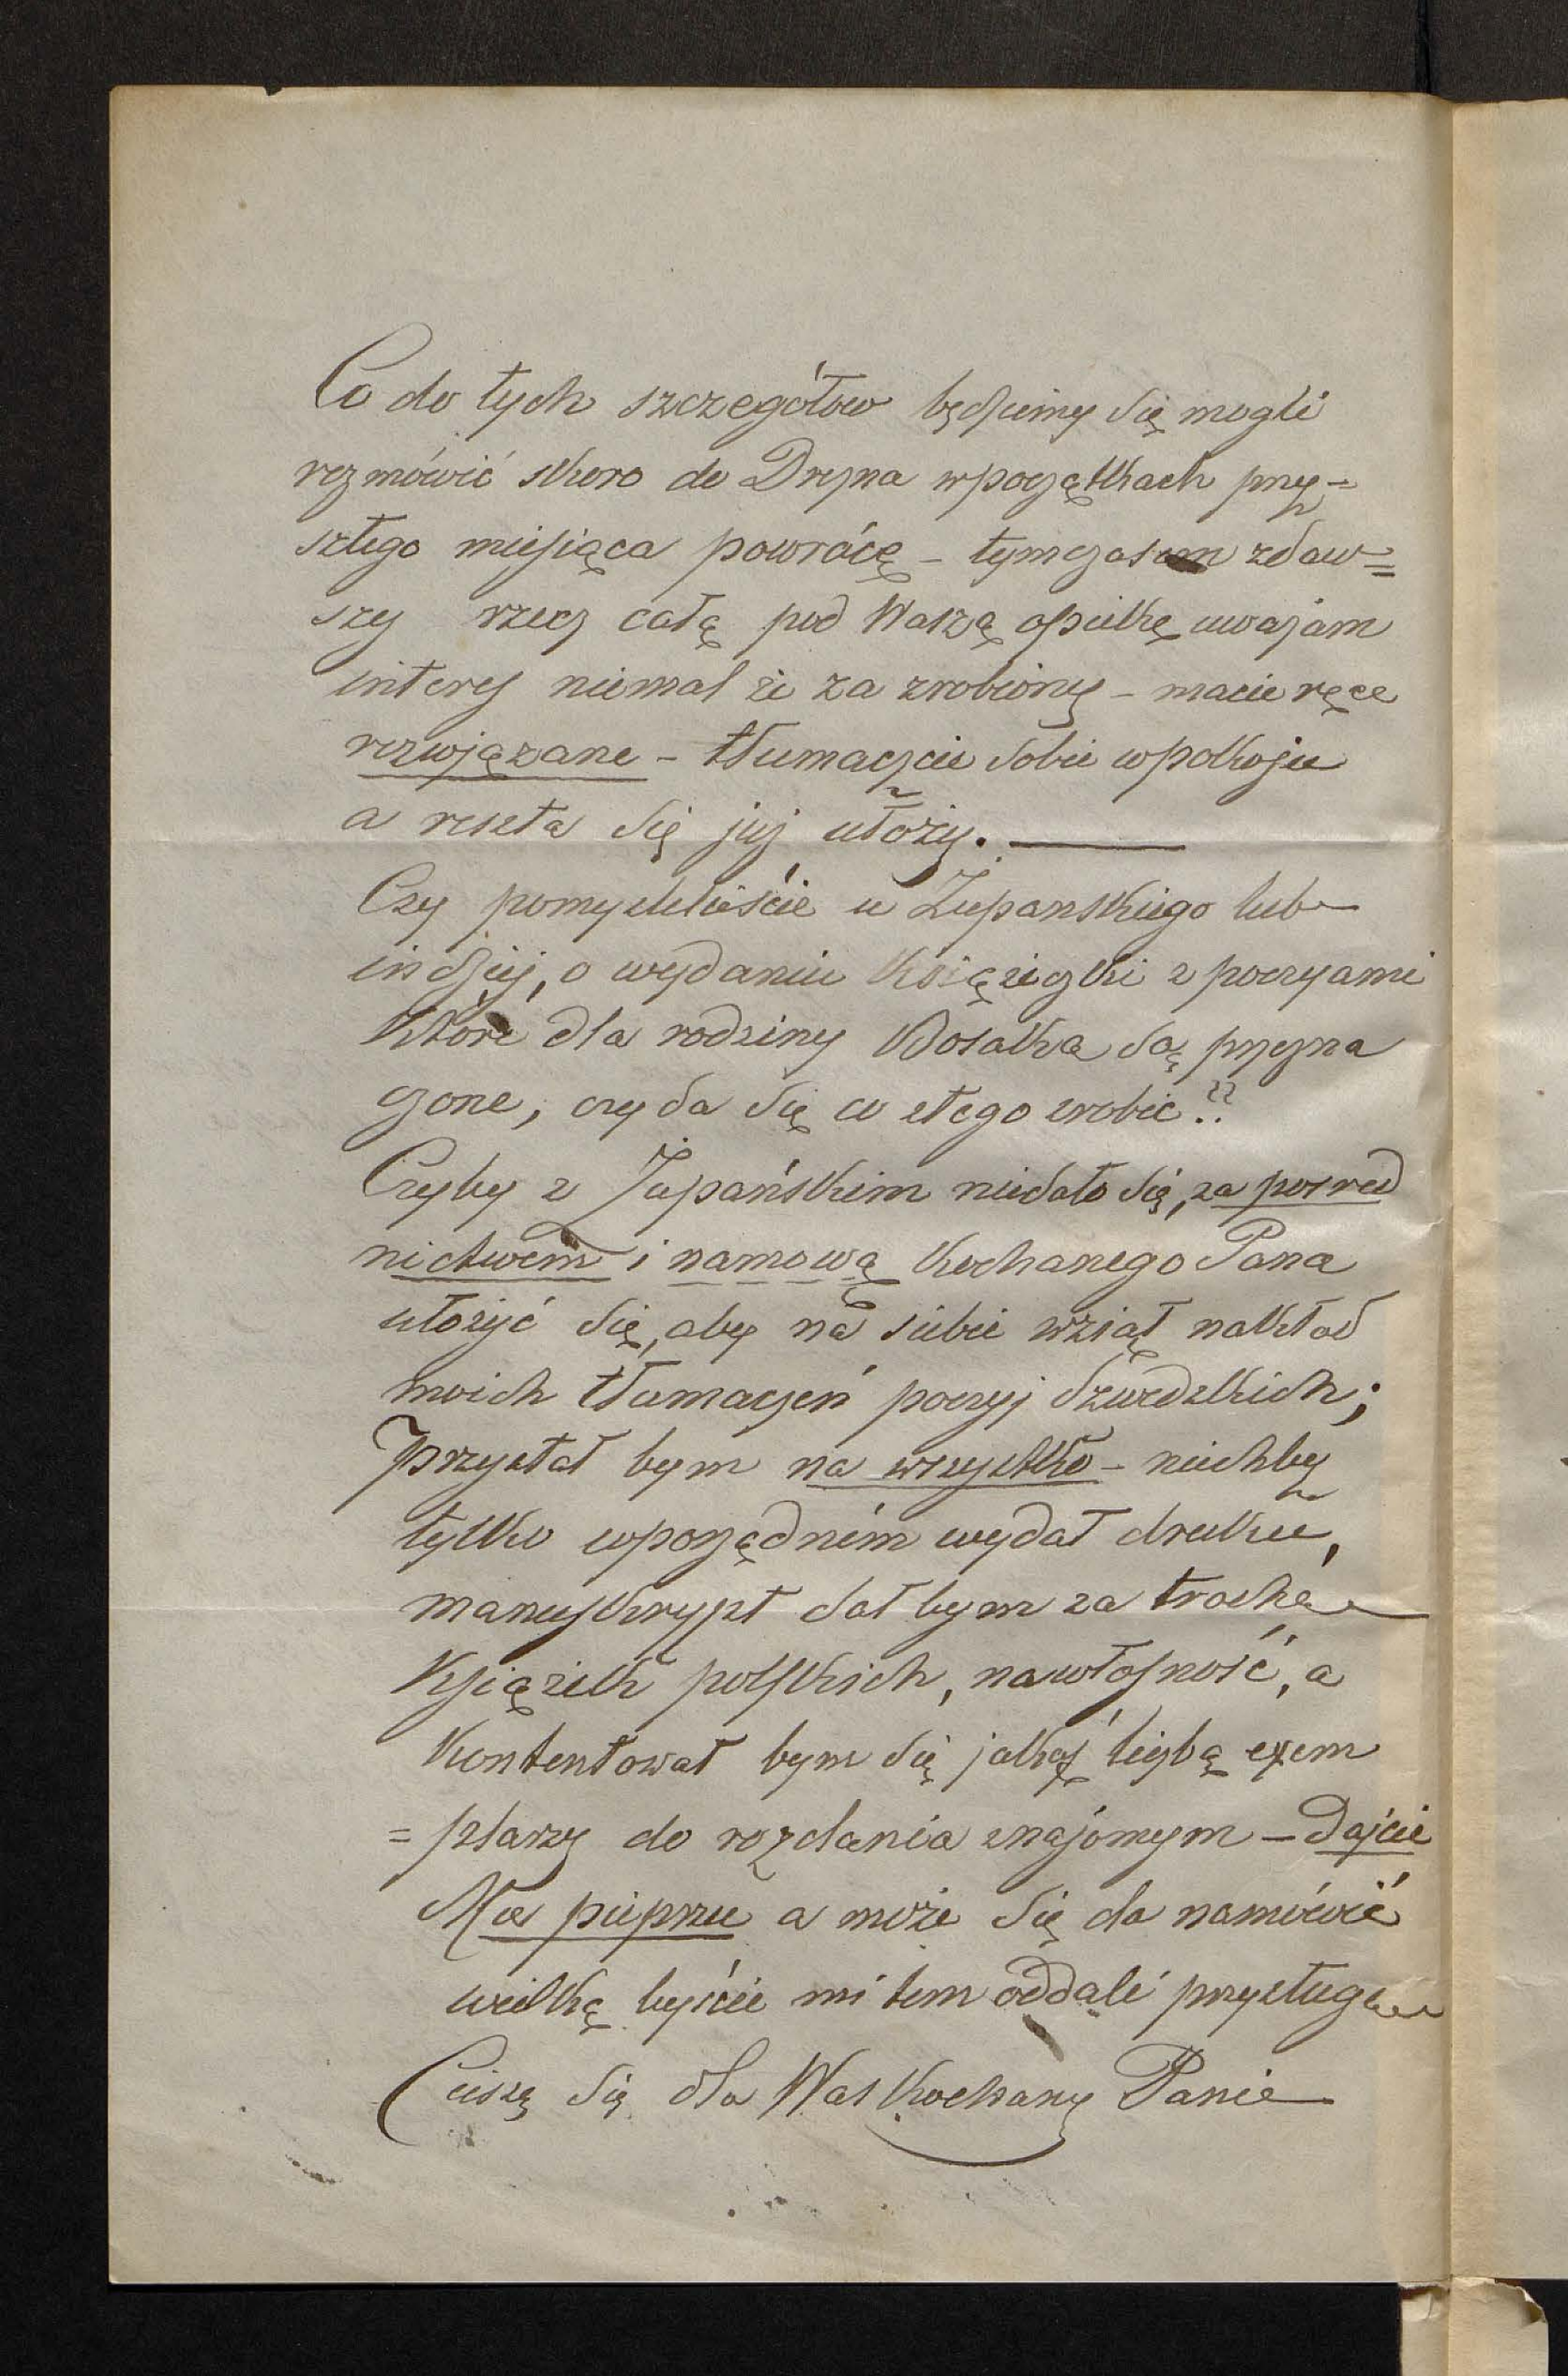 Co do tych szczegółow będziemy się mogli
rozmówić skoro do Drezna wpoczątkach przy=
szłego miesiąca powrócę – tymczasem zdaw=
szy rzecz całą pod Waszą opiekę uważam
interes niemal że za zrobiony – macie ręce
rozwjązane – tłumaczcie sobie wpokoju
a reszta się już ułoży. —
Czy pomyśleliście u Żupanskiego lub
indziej, o wydaniu książeczki z poezyami
które dla rodziny Bosaka są przezna
czone, czy da się co ztego zrobić??
Czyby z Żupańskim niedało się, za pośred
nictwem i namową kochanego Pana
ułożyć się, aby na siebie wziął nakład
moich tłumaczeń poezyj Szwedzkich;
przystał bym na wszystko – niechby
tylko wporządném wydał druku,
manuskrypt dał bym za trochę
książek polskich, nawłasność, a
kontentował bym się jakąś liczbą exem
=plarzy do rozdania znajómym – Dajcie
Mu pieprzu a może się da namówić
wielką byście mi tem oddali przysługę
Cieszę się dla Was kochany Panie